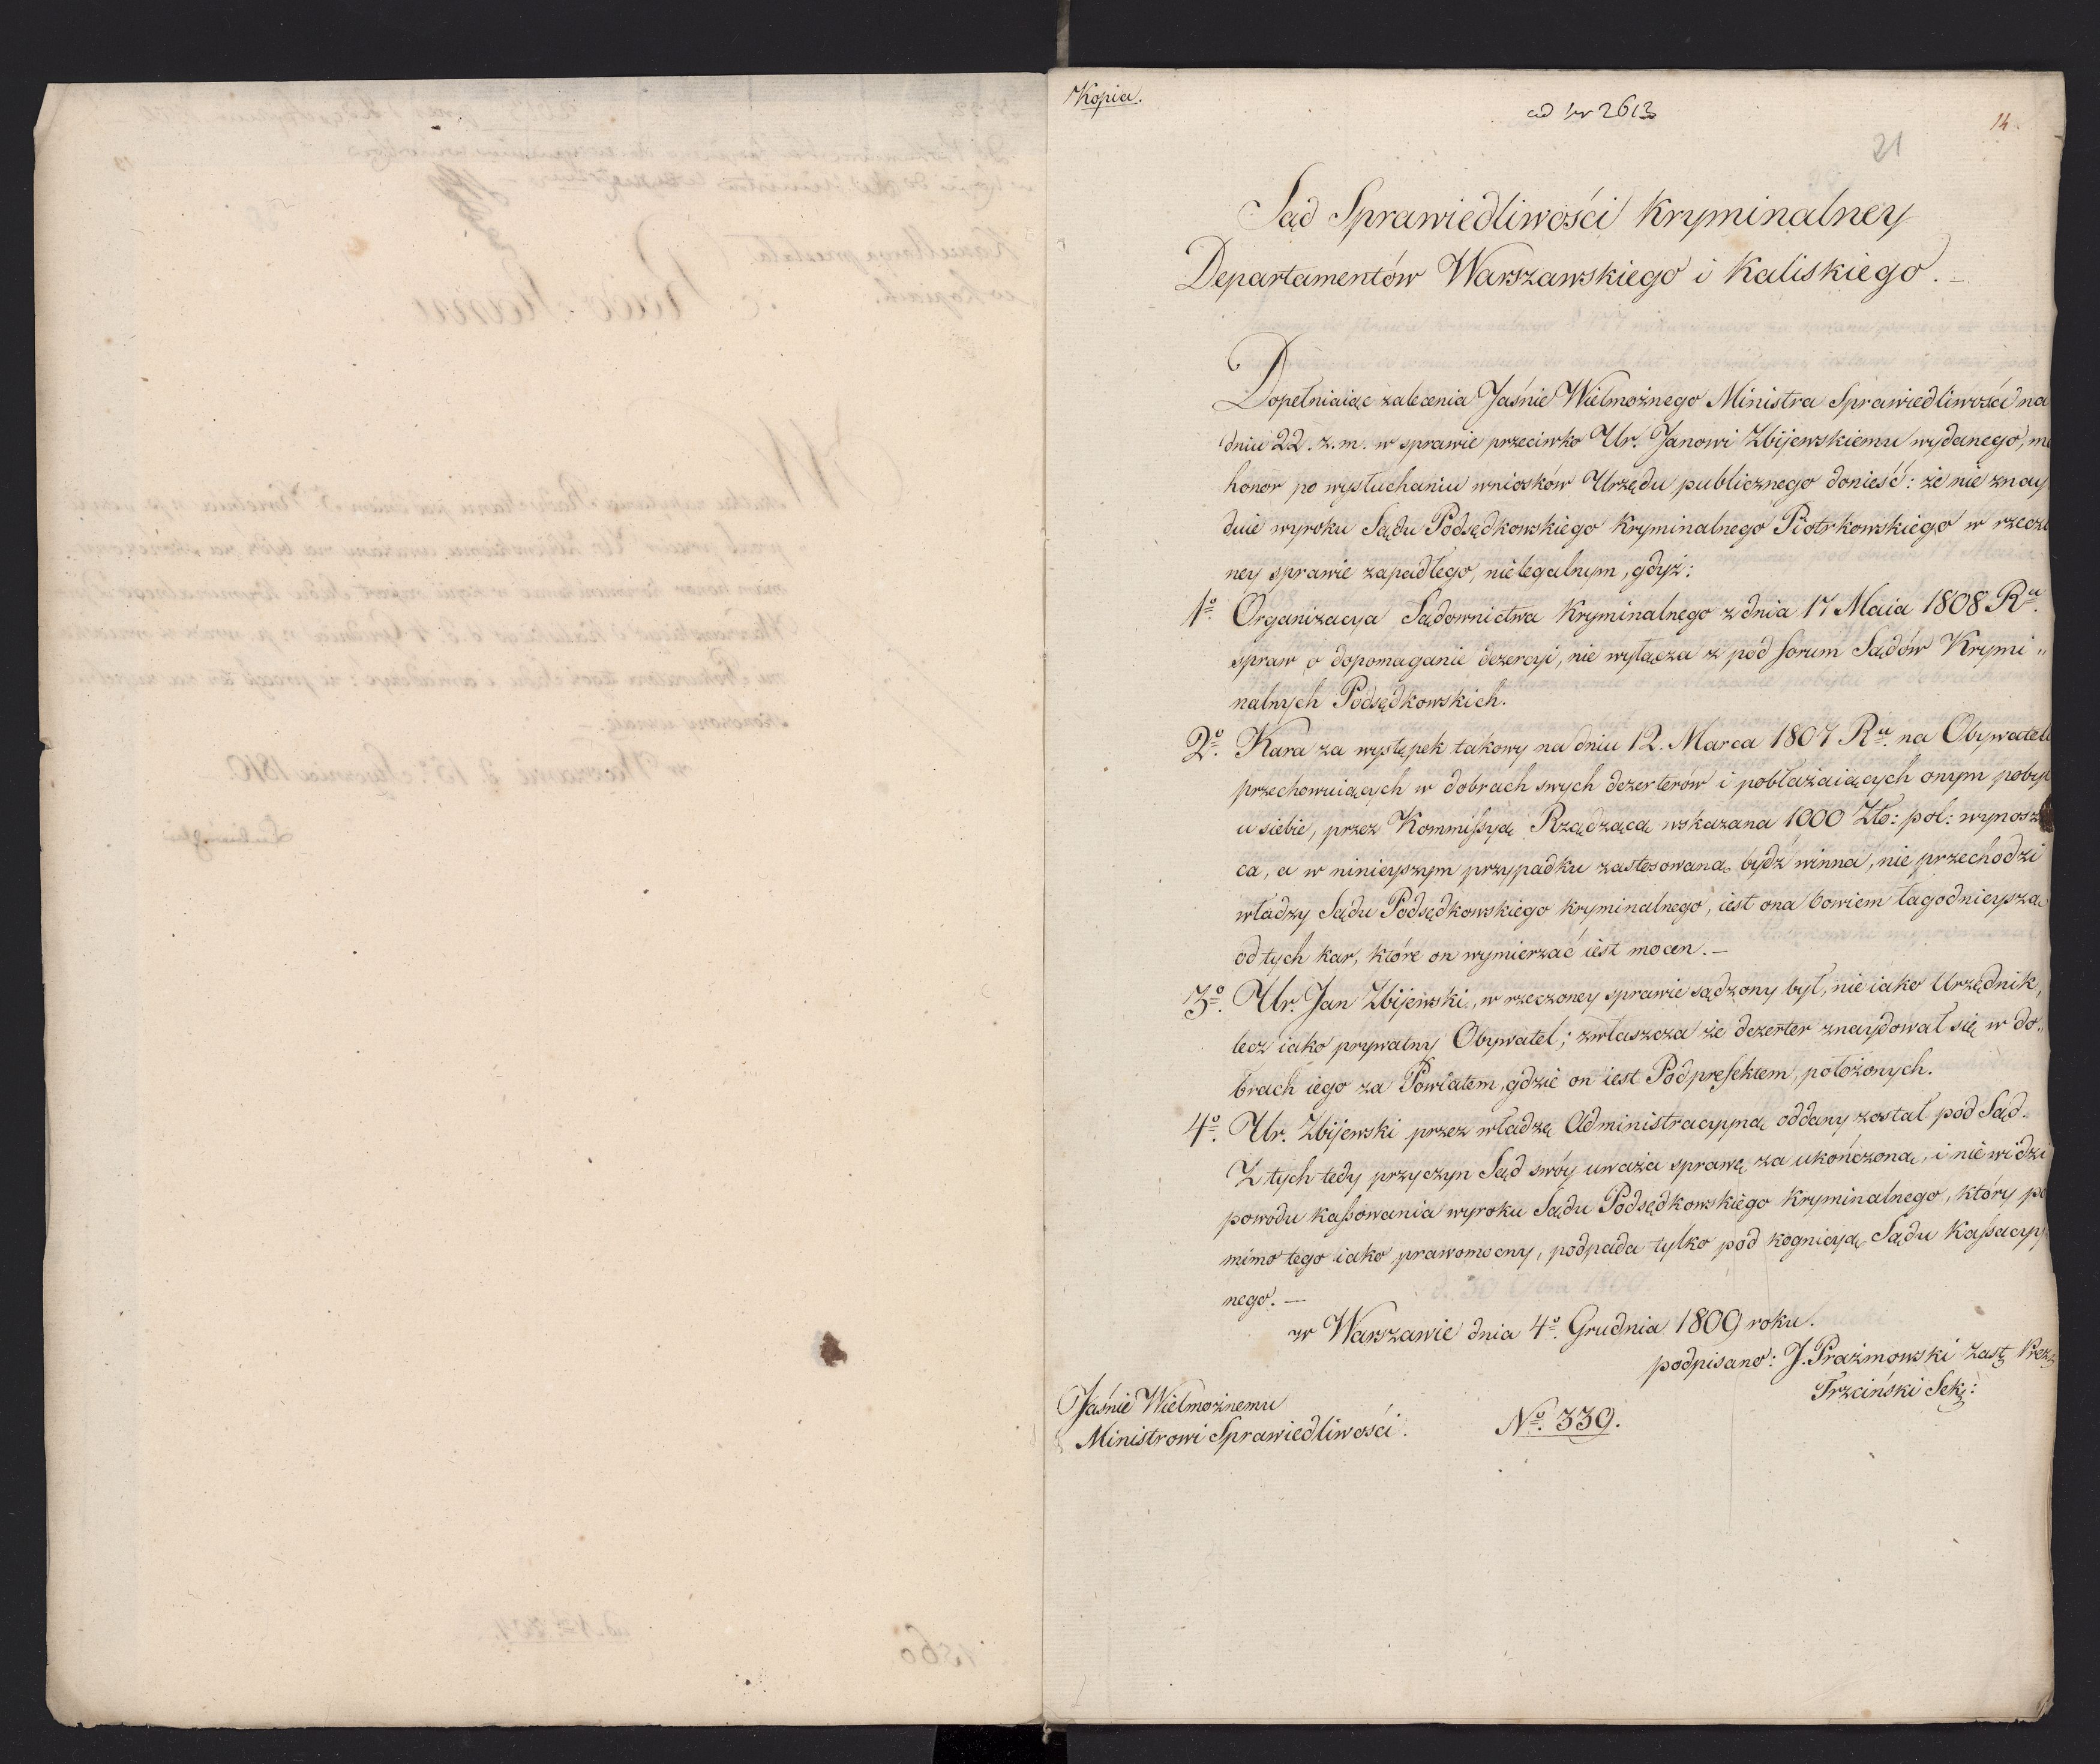 Kopia.
ad nr 2613
14.
21
Sąd Sprawiedliwości Kryminalney
Departamentów Warszawskiego i Kaliskiego. —
Dopełniaiąc zalecenia Jaśnie Wielmożnego Ministra Sprawiedliwości na
dniu 22. z. m. w sprawie przeciwko Ur. Janowi Zbijewskiemu wydanego, ma
honor po wysłuchaniu wniosków Urzędu publicznego donieść: że nie znay
duie wyroku Sądu Podsędkowskiego Kryminalnego Piotrkowskiego w rzeczo
ney sprawie zapadłego, nielegalnym, gdyż:
1o. Organizacya Sądownictwa Kryminalnego z dnia 17 Maia 1808 Ru.
spraw o dopomaganie dezercyi, nie wyłącza z pod forum Sądów Krymi„
nalnych Podsędkowskich.
2o. Kara za występek takowy na dniu 12. Marca 1807 Ru. na Obywateli
przechowuiących w dobrach swych dezerterów i pobłażaiących onym pobyt
u siebie, przez Kommissyą Rządzącą wskazana 1000 Zło: pol: wynoszą
ca, a w ninieyszym przypadku zastosowaną bydź winna, nie przechodzi
władzy Sądu Podsędkowskiego kryminalnego, iest ona bowiem łagodnieyszą
od tych kar, które on wymierzać iest mocen. —
3o. Ur. Jan Zbijewski, w rzeczoney sprawie sądzony był, nie iako Urzędnik,
lecz iako prywatny Obywatel; zwłaszcza że dezerter znaydował się w do„
brach iego za Powiatem, gdzie on iest Podprefektem, położonych.
4o. Ur. Zbijewski przez władzę Administracyyną oddany został pod Sąd.
Z tych tedy przyczyn Sąd swóy uważa sprawę za ukończoną, i nie widzi
powodu kassowania wyroku Sądu Podsędkowskiego Kryminalnego, który po
mimo tego iako prawomocny, podpada tylko pod kognicyą Sądu Kassacyy
nego. —
w Warszawie dnia 4o. Grudnia 1809 roku.
podpisano: J. Prażmowski Zast. Prez.
Trzciński Sek:
Jaśnie Wielmożnemu
Ministrowi Sprawiedliwości.
No. 339.